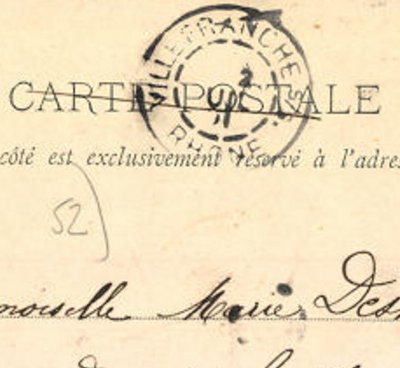 VILLEFRANCHE-S-S.
CARTE POSTALE
RHÔNE
côté est exclusivement réservé à l'adres
52
moiselle Marie Des